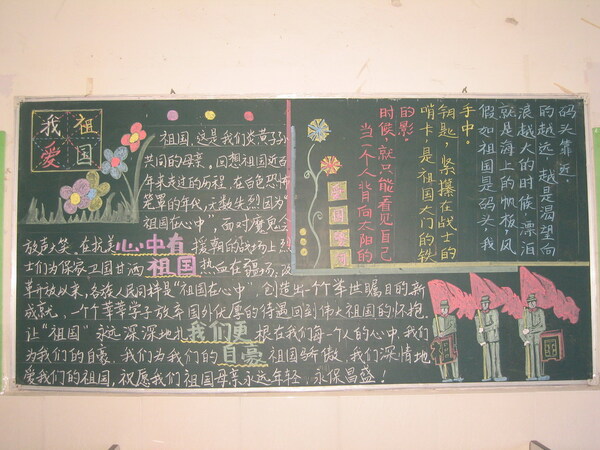 我 祖
爱 国
祖国，这是我们炎黄子孙
共同的母亲，回想祖国近百
年来走过的历程，在白色恐怖
笼罩的年代，无数先烈因为“
祖国在心中”，而对魔鬼会
放声大笑，在抗美 心中有 援朝的战场上烈
士们为保家卫国甘洒 祖国 热血在疆场，改
革开放以来，各族人民同样是“祖国在心中”，创造出一个个举世瞩目的新
成就，一个个莘莘学子放弃国外优厚的待遇回到伟大祖国的怀抱.
让“祖国”永远深深地扎 我们更 根在我们每一个人的心中，我们
为我们的自豪、我们为我们的 自豪 祖国骄傲，我们深情地
爱我们的祖国，祝愿我们祖国母亲永远年轻，永保昌盛！
当一个人背向太阳的
时候，就只能看见自己
的影。
哨卡，是祖国大门的铁
钥匙，紧攥在战士的
手中。
假如祖国是码头，我
就是海上的帆板，风
浪越大的时候，漂泊
的越远，越是渴望向
码头靠近．